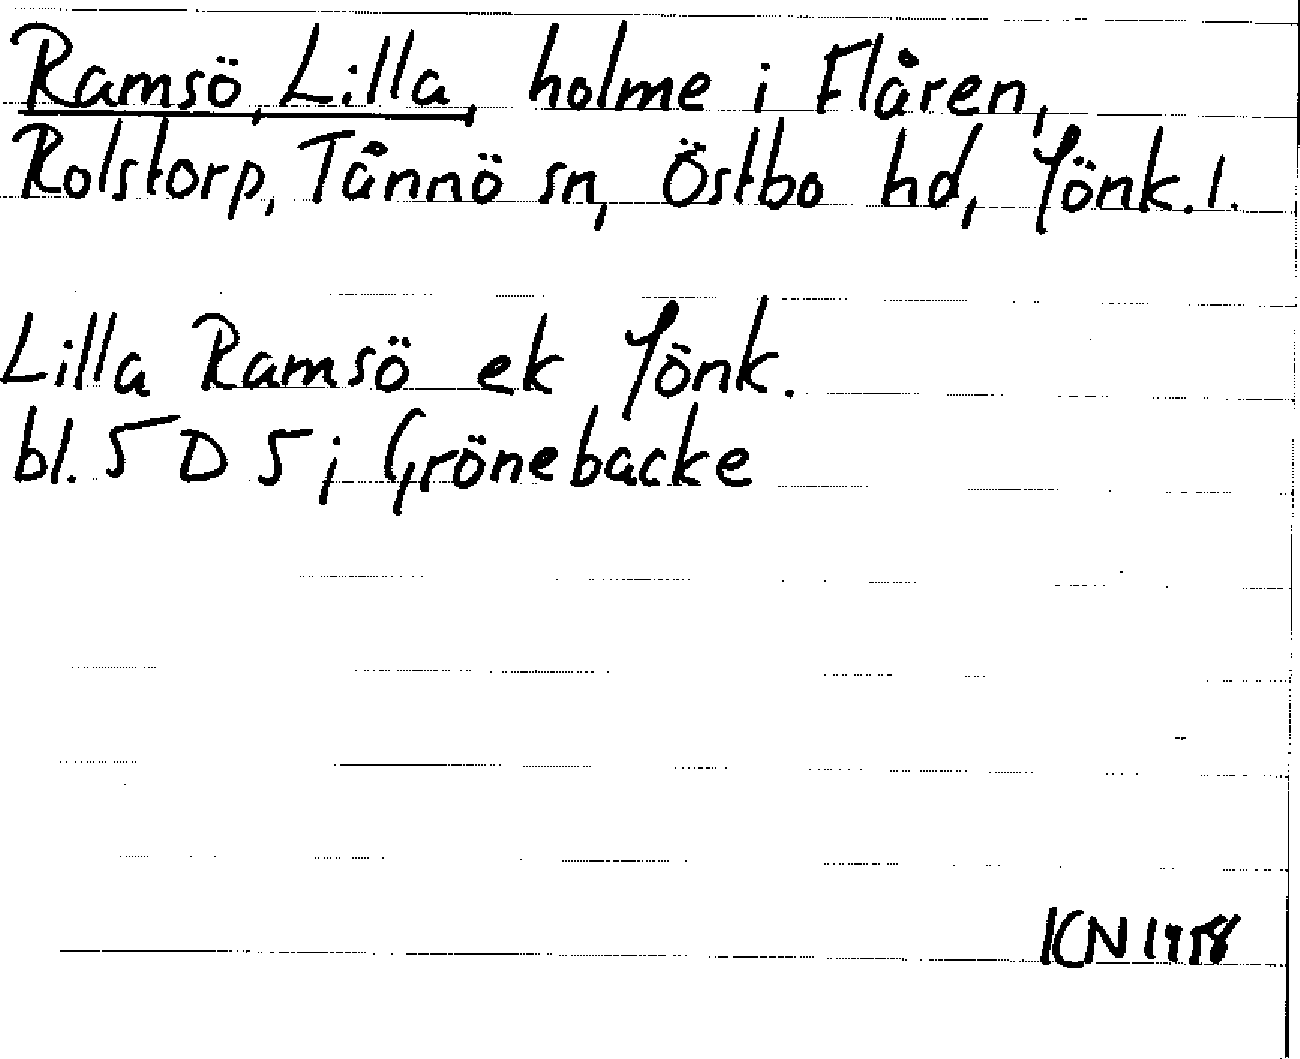 Ramsö, Lilla, holme i Flåren,
Rolstorp, Tånnö sn, Östbo hd, Jönk. l.
Lilla Ramsö ek Jönk.
bl. 5 D 5 j Grönebacke
KN 1958